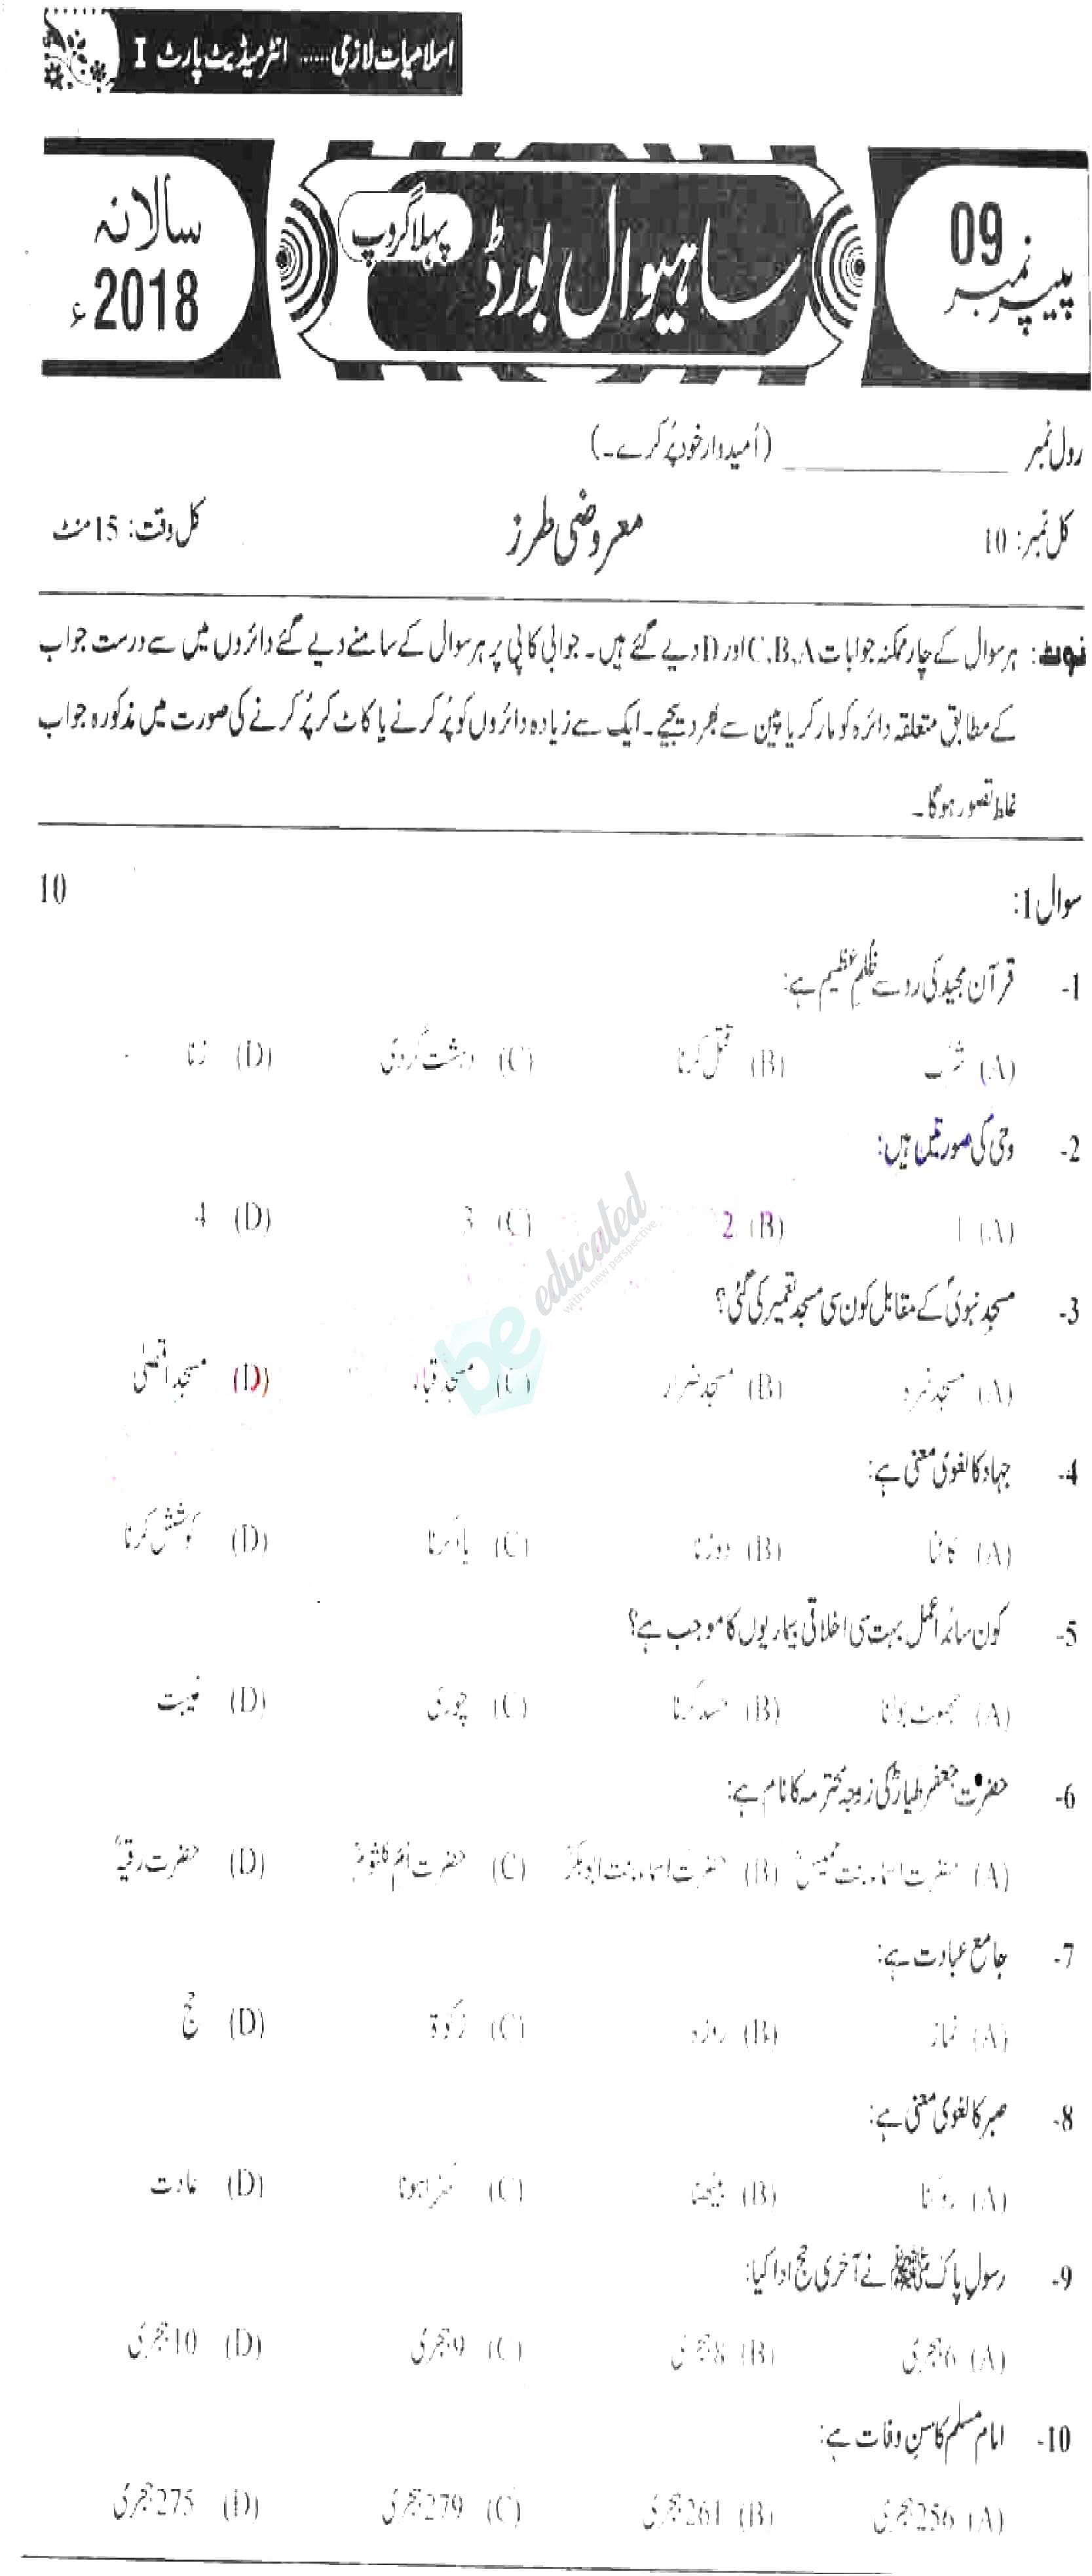 اسلامیات لازمی ...... انٹرمیڈیٹ پارٹ I
پیپر نمبر 09
ساہیوال بورڈ
پہلا گروپ
سالانہ 2018ء
رول نمبر ____________ (اُمیدوار خود پُر کرے۔)
کل نمبر: 10 معروضی طرز کل وقت: 15 منٹ
نوٹ: ہر سوال کے چار ممکنہ جوابات C،B،A اور D دیے گئے ہیں۔ جوابی کاپی پر ہر سوال کے سامنے دیے گئے دائروں میں سے درست جواب
کے مطابق متعلقہ دائرہ کو مارکر یا پین سے بھر دیجیے۔ ایک سے زیادہ دائروں کو پُر کرنے یا کاٹ کر پُر کرنے کی صورت میں مذکورہ جواب
غلط تصور ہوگا۔
سوال 1: 10
1- قرآن مجید کی رو سے ظلمِ عظیم ہے:
(A) شرک (B) قتل کرنا (C) دہشت گردی (D) زنا
2- وحی کی صورتیں ہیں:
(A) 1 (B) 2 (C) 3 (D) 4
3- مسجدِ نبویؐ کے مقابل کون سی مسجد تعمیر کی گئی؟
(A) مسجد نمرہ (B) مسجد ضرار (C) مسجد قباء (D) مسجد اقصٰی
4- جہاد کا لغوی معنی ہے:
(A) کاٹنا (B) دوڑنا (C) یاد کرنا (D) کوشش کرنا
5- کون سا بُرا عمل بہت سی اخلاقی بیماریوں کا موجب ہے؟
(A) جھوٹ بولنا (B) حسد کرنا (C) چوری (D) غیبت
6- حضرت جعفر طیارؓ کی زوجہ محترمہ کا نام ہے:
(A) حضرت اسماء بنت عمیسؓ (B) حضرت اسماء بنت ابوبکرؓ (C) حضرت اُم کلثومؓ (D) حضرت رقیہؓ
7- جامع عبادت ہے:
(A) نماز (B) روزہ (C) زکوٰۃ (D) حج
8- صبر کا لغوی معنی ہے:
(A) روکنا (B) بیٹھنا (C) کھڑا ہونا (D) عادت
9- رسولِ پاک ﷺ نے آخری حج ادا کیا:
(A) 6 ہجری (B) 8 ہجری (C) 9 ہجری (D) 10 ہجری
10- امام مسلم کا سنِ وفات ہے:
(A) 256 ہجری (B) 261 ہجری (C) 279 ہجری (D) 275 ہجری
be educated
with a new perspective